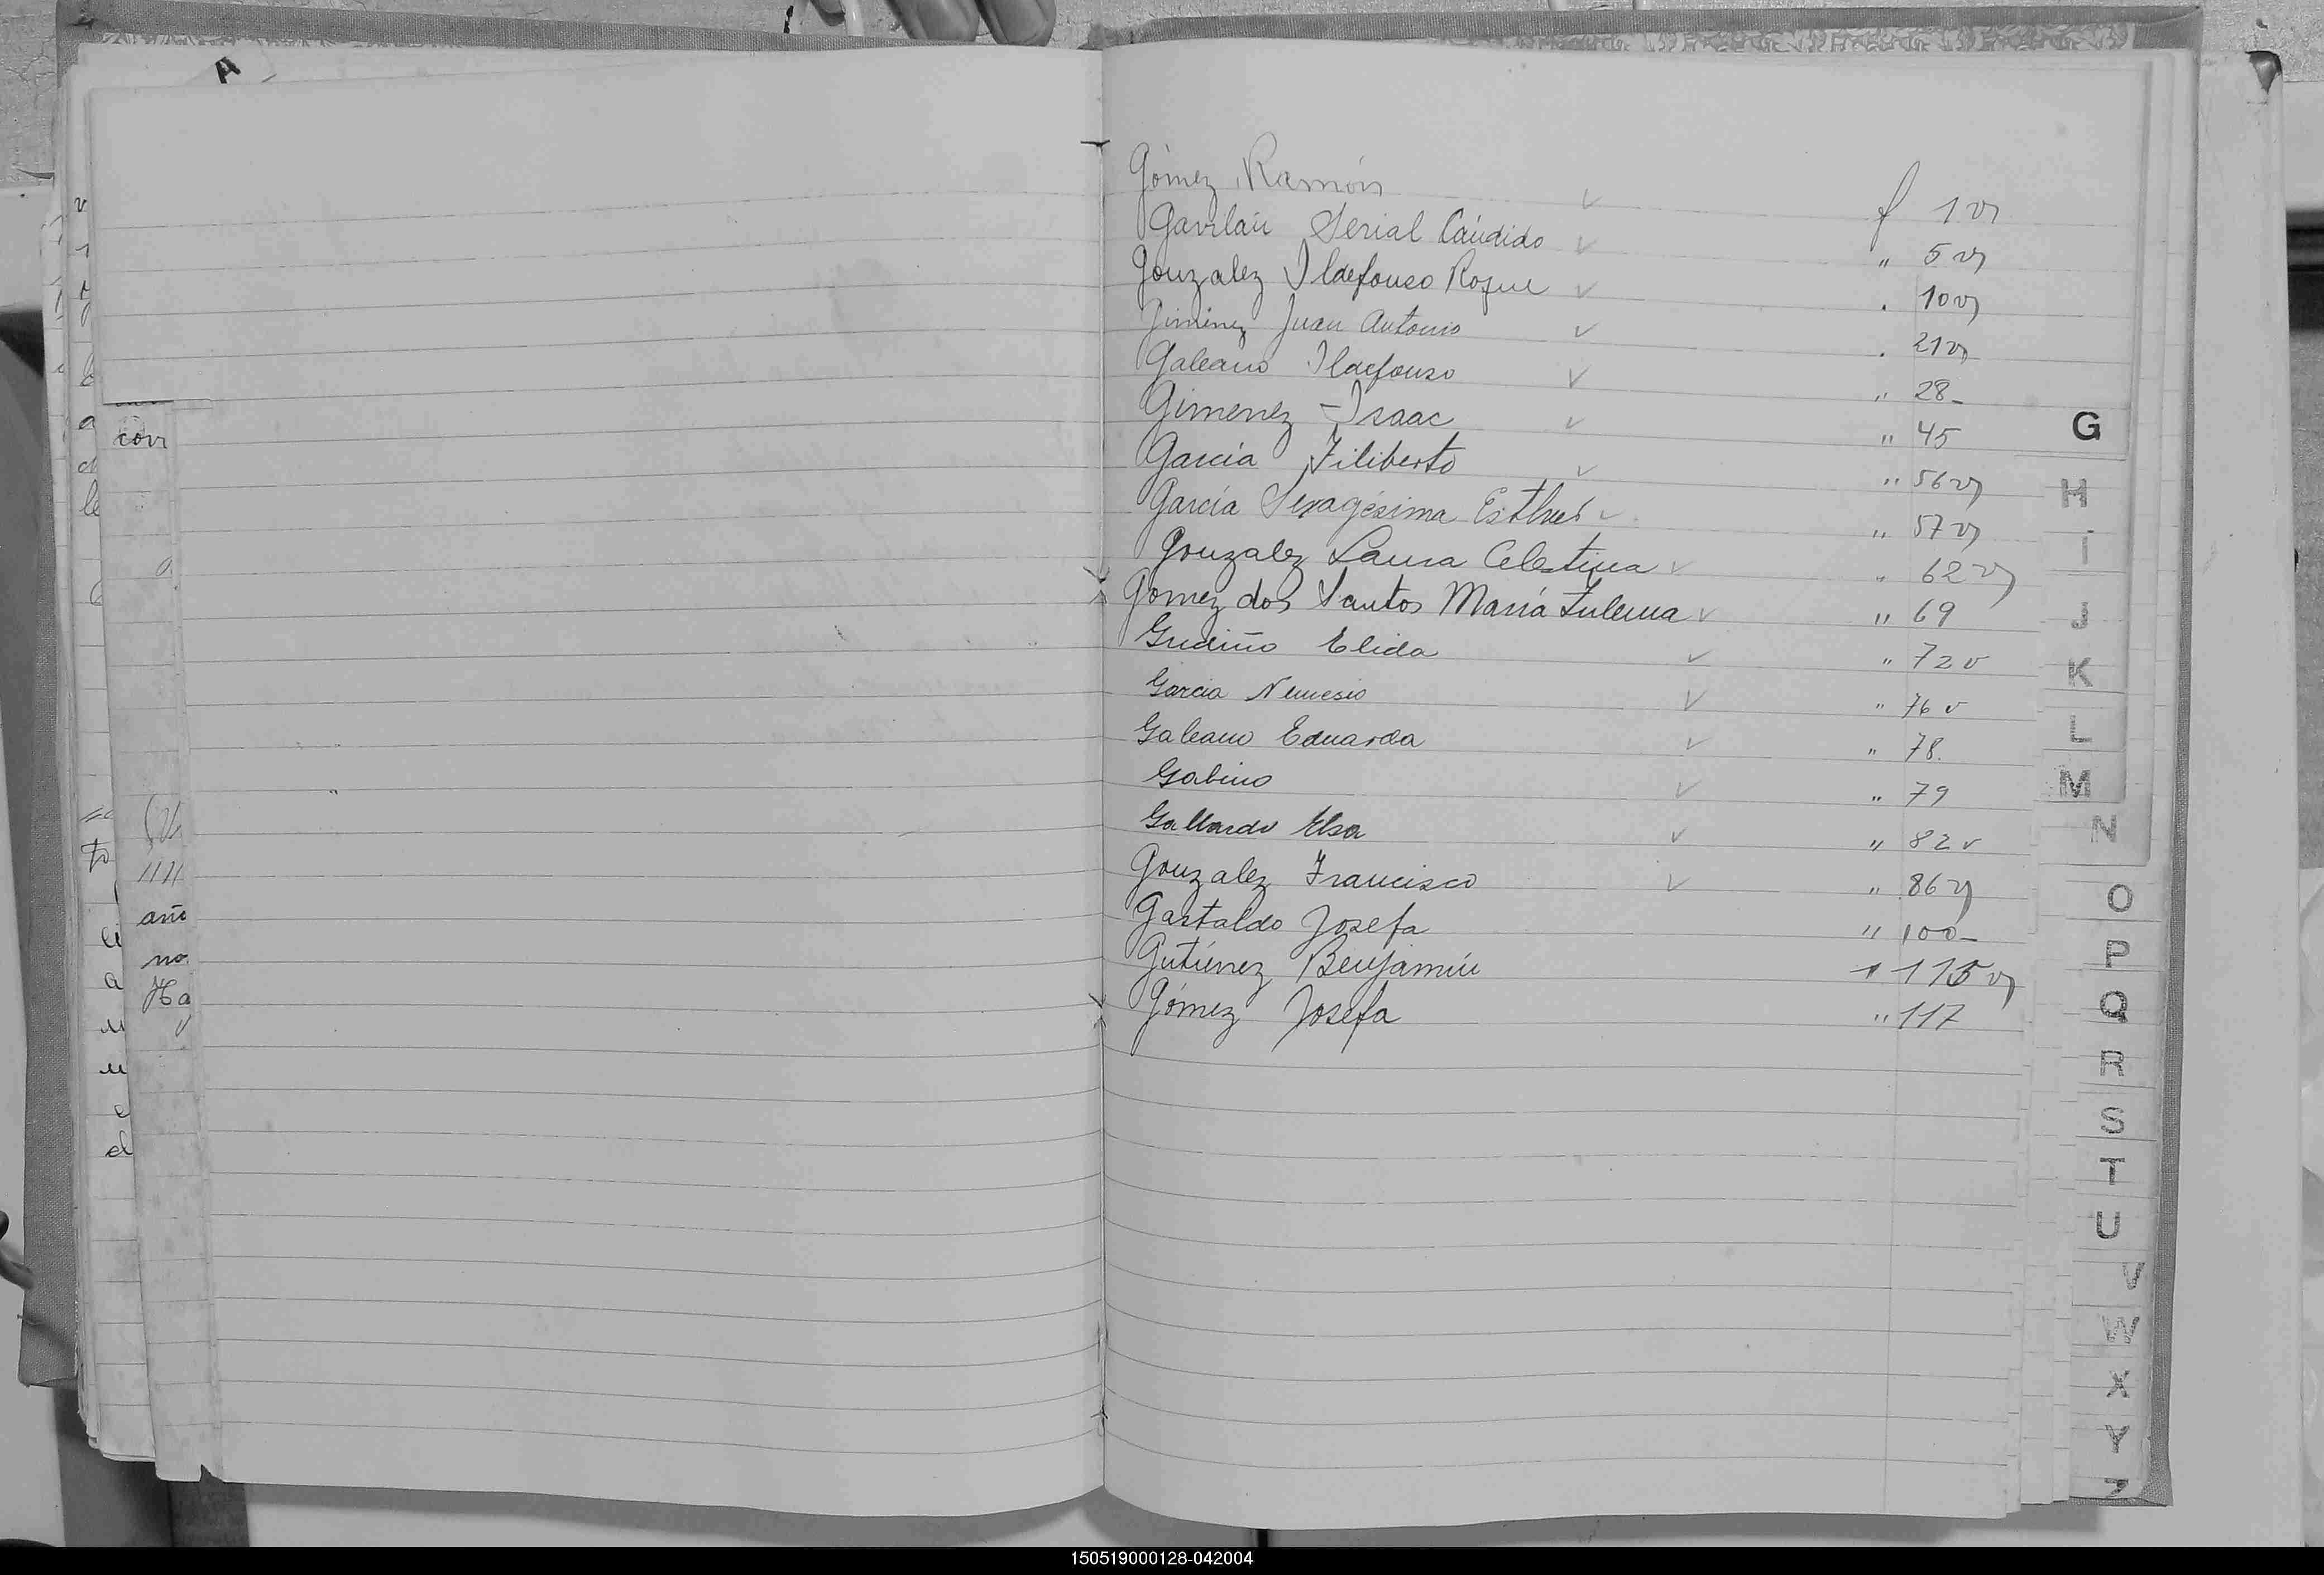 A
Gómez Ramón ✓ f 1 v
Gavilán Serial Cándido ✓ " 5 v
Gonzalez Ildefonso Roque ✓ . 10 v
Jiminez Juan Antonio ✓ . 21 v
Galeano Ildefonso ✓ " 28 -
Gimenez - Isaac ✓ " 45
García Filiberto ✓ " 56 v
García Sexagésima Esther ✓ " 57 v
Gonzalez Laura Celestina ✓ " 62 v
Gomez dos Santos María Zulema ✓ " 69
Gudiño Elida ✓ " 72 v
Garcia Nemesio ✓ " 76 v
Galeano Eduarda ✓ " 78.
Gabino ✓ " 79
Gallardo Elsa ✓ " 82 v
Gonzalez Francisco ✓ " 86 v
Gastaldo Josefa " 100 -
Gutiérrez Benjamín " 115 v
Gómez Josefa " 117
G
H
I
J
K
L
M
N
O
P
Q
R
S
T
U
V
W
X
Y
Z
año
no
Ha
150519000128-042004